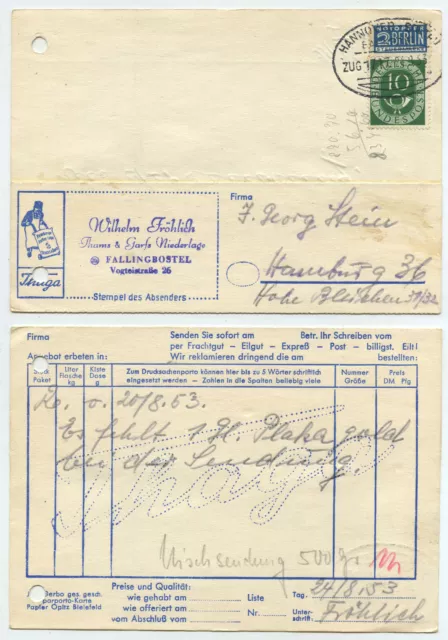 HANNOVER
ZUG
NOTOPFER
2 BERLIN
STEUERMARKE
DEUTSCHE
10
BUNDESPOST
Wilhelm Fröhlich
Thams & Garfs Niederlage
FALLINGBOSTEL
Vogteistraße 26
Stempel des Absenders
Thuga
Firma
J. Georg Stein
Hamburg 36
Hohe Bleichen 31/32
Firma
Senden Sie sofort am
Betr. Ihr Schreiben vom
per Frachtgut - Eilgut - Expreß - Post - billigst. Eilt!
Angebot erbeten in:
Wir reklamieren dringend die am
bestellten:
Stück Paket
Liter Flasche kg
Kiste Dose g
Zum Drucksachenporto können hier bis zu 5 Wörter schriftlich eingesetzt werden - Zahlen in die Spalten beliebig viele
Nummer Größe
Preis DM Pfg
v. 20/8.53.
Es fehlt 1 Fl. Plaka gold
bei der Sendung.
Thuga
Mischsendung 500 gr.
Derbo ges. gesch.
Papier Opitz Bielefeld
Preise und Qualität:
wie gehabt am
wie offeriert am
vom Abschluß vom
Liste
Nr.
Tag:
24/8.53
Unterschrift:
Fröhlich